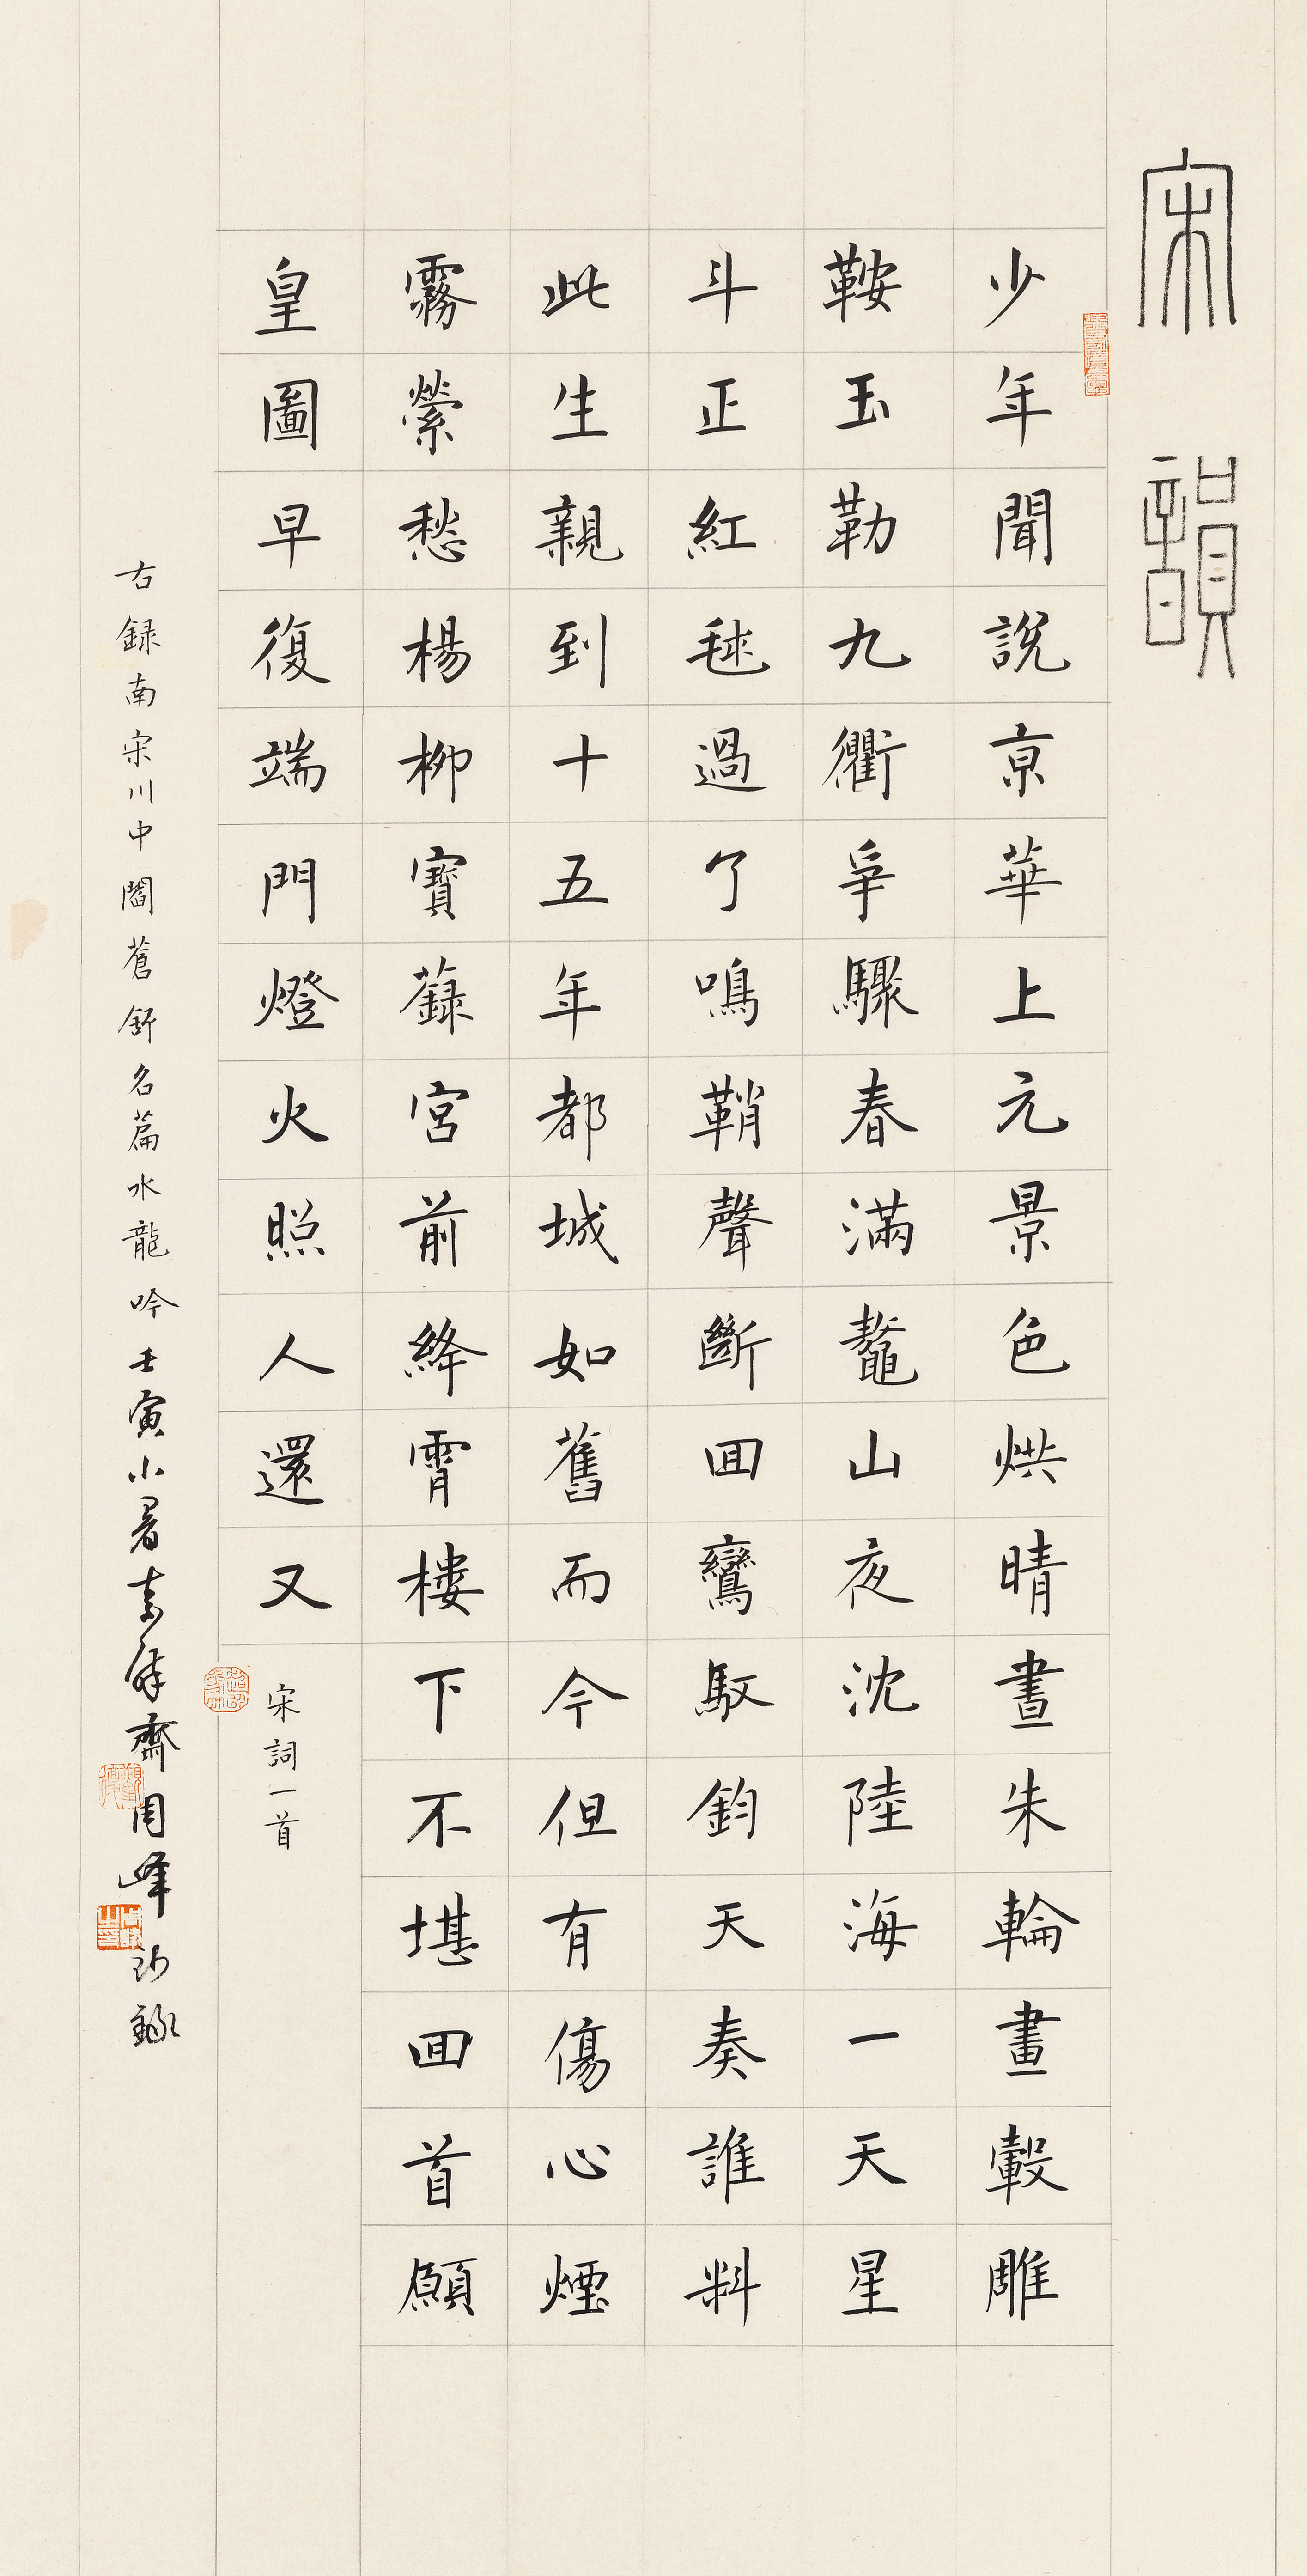 宋韻
少年聞說京華上元景色烘晴晝朱輪畫轂雕
鞍玉勒九衢爭驟春滿鼇山夜沈陸海一天星
斗正紅毬過了鳴鞘聲斷回鸞馭鈞天奏誰料
此生親到十五年都城如舊而今但有傷心煙
霧縈愁楊柳寶籙宮前絳霄樓下不堪回首願
皇圖早復端門燈火照人還又
宋詞一首
右録南宋川中閻蒼舒名篇水龍吟壬寅小暑齋周峰録